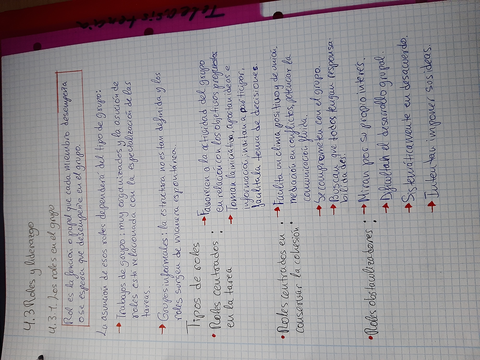 Teleasistencia
4.3 Roles y liderazgo
4.3.1 Los roles en el grupo
Rol es la función o papel que cada miembro desempeña
o se espera que desempeñe en el grupo.
La asunción de esos roles dependerá del tipo de grupo:
→ Trabajos de grupo: muy organizados y la asunción de
roles está relacionada con la especialización de las
tareas.
→ Grupos informales: la estructura no es tan definida y los
roles surgen de manera espontánea.
Tipos de roles
• Roles centrados en la tarea :
→ Favorecen a la actividad del grupo
en relación con los objetivos propuestos
→ Toman la iniciativa, aportan ideas e
información, invitan a participar,
facilitan la toma de decisiones
• Roles centrados en conservar la cohesión :
→ Facilita un clima positivo y de unión,
mediación en conflictos, potencian la
comunicación fluida.
→ Se comprometen con el grupo.
→ Buscan que todos tengan responsa
bilidades.
• Roles obstaculizadores :
→ Miran por su propio interés.
→ Dificultan el desarrollo grupal.
→ Sistemáticamente en desacuerdo.
→ Intentan imponer sus ideas.